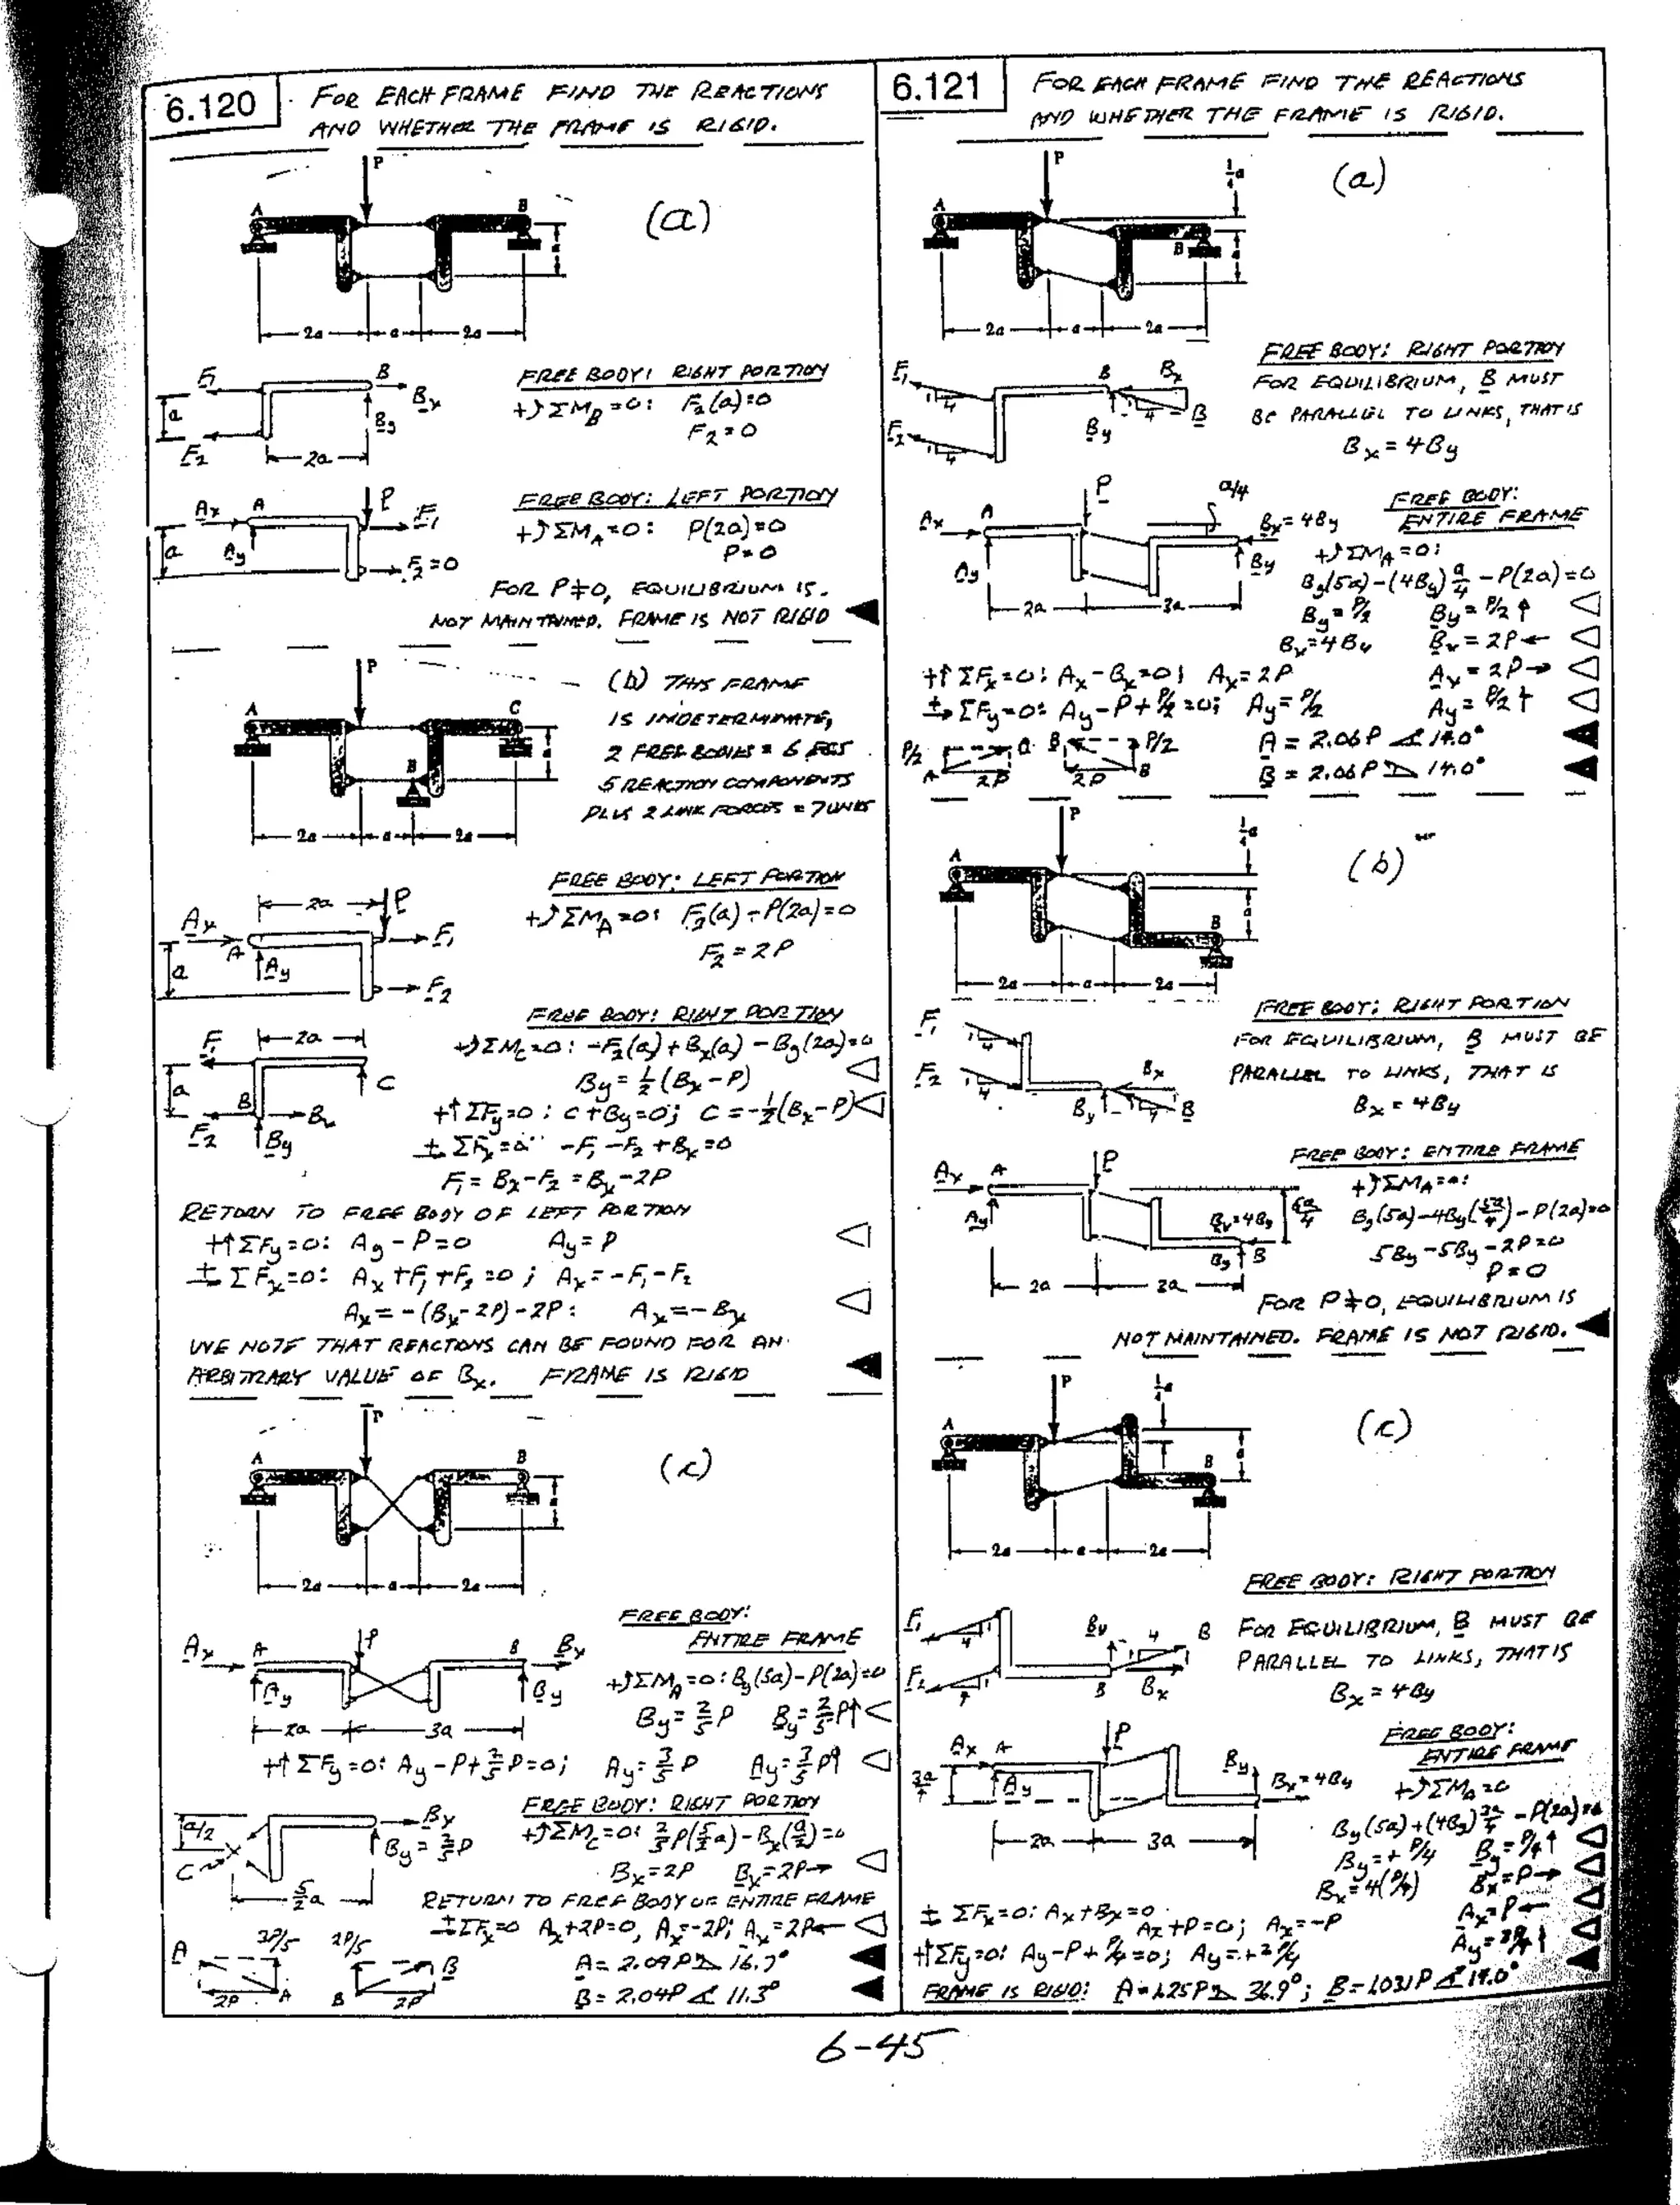 6.120
FOR EACH FRAME FIND THE REACTIONS
AND WHETHER THE FRAME IS RIGID.
P
(a)
A
B
a
2a
a
2a
F1
B
Bx
a
By
F2
2a
FREE BODY: RIGHT PORTION
+↺ΣM_B=0: F2(a)=0
F2=0
Ax
A
P
F1
a
Ay
F2=0
FREE BODY: LEFT PORTION
+↺ΣM_A=0: P(2a)=0
P=0
FOR P≠0, EQUILIBRIUM IS
NOT MAINTAINED. FRAME IS NOT RIGID
P
(b) THIS FRAME
IS INDETERMINATE,
2 FREE BODIES = 6 EQS
5 REACTION COMPONENTS
PLUS 2 LINK FORCES = 7 UNKS
A
C
B
a
2a
a
2a
2a
P
Ax
A
Ay
F1
a
F2
FREE BODY: LEFT PORTION
+↺ΣM_A=0: F2(a)-P(2a)=0
F2=2P
F1
2a
a
C
B
Bx
F2
By
FREE BODY: RIGHT PORTION
+↺ΣM_C=0: -F2(a)+Bx(a)-By(2a)=0
By=½(Bx-P)
+↑ΣFy=0: C+By=0; C=-½(Bx-P)
+→ΣFx=0: -F1-F2+Bx=0
F1=Bx-F2=Bx-2P
RETURN TO FREE BODY OF LEFT PORTION
+↑ΣFy=0: Ay-P=0 Ay=P
+→ΣFx=0: Ax+F1+F2=0; Ax=-F1-F2
Ax=-(Bx-2P)-2P: Ax=-Bx
WE NOTE THAT REACTIONS CAN BE FOUND FOR AN
ARBITRARY VALUE OF Bx. FRAME IS RIGID
P
(c)
A
B
a
2a
a
2a
FREE BODY:
ENTIRE FRAME
Ax
A
P
B
Bx
Ay
By
2a
3a
+↺ΣM_A=0: By(5a)-P(2a)=0
By=2/5P By=2/5P↑
+↑ΣFy=0: Ay-P+2/5P=0; Ay=3/5P Ay=3/5P↑
a/2
C
Bx
By=2/5P
5/2a
FREE BODY: RIGHT PORTION
+↺ΣM_C=0: 2/5P(5/2a)-Bx(a/2)=0
Bx=2P Bx=2P→
RETURN TO FREE BODY OF ENTIRE FRAME
+→ΣFx=0 Ax+2P=0, Ax=-2P; Ax=2P←
A
3P/5
2P
A
2P/5
B
B
2P
A=2.09P 16.7°
B=2.04P 11.3°
6.121
FOR EACH FRAME FIND THE REACTIONS
AND WHETHER THE FRAME IS RIGID.
P
¼a
(a)
A
B
a
2a
a
2a
F1
4
F2
4
B
Bx
4
B
By
FREE BODY: RIGHT PORTION
FOR EQUILIBRIUM, B MUST
BE PARALLEL TO LINKS, THAT IS
Bx=4By
P
a/4
Ax
A
Ay
Bx=4By
By
2a
3a
FREE BODY:
ENTIRE FRAME
+↺ΣM_A=0:
By(5a)-(4By)a/4-P(2a)=0
By=P/2 By=P/2↑
Bx=4By Bx=2P←
+↑ΣFx=0: Ax-Bx=0; Ax=2P Ax=2P→
+→ΣFy=0: Ay-P+P/2=0; Ay=P/2 Ay=P/2↑
P/2
A
2P
B
P/2
2P
B
A=2.06P 14.0°
B=2.06P 14.0°
P
¼a
(b)
A
B
a
2a
a
2a
F1
4
F2
4
Bx
By
4
B
FREE BODY: RIGHT PORTION
FOR EQUILIBRIUM, B MUST BE
PARALLEL TO LINKS, THAT IS
Bx=4By
Ax
A
P
Ay
5a/4
Bx=4By
By
B
2a
3a
FREE BODY: ENTIRE FRAME
+↺ΣM_A=0:
By(5a)-4By(5a/4)-P(2a)=0
5By-5By-2P=0
P=0
FOR P≠0, EQUILIBRIUM IS
NOT MAINTAINED. FRAME IS NOT RIGID.
P
¼a
(c)
A
B
a
2a
a
2a
FREE BODY: RIGHT PORTION
F1
4
F2
By
4
B
B
Bx
FOR EQUILIBRIUM, B MUST BE
PARALLEL TO LINKS, THAT IS
Bx=4By
FREE BODY:
ENTIRE FRAME
Ax
A
P
3a/4
Ay
By
Bx=4By
2a
3a
+↺ΣM_A=0
By(5a)+(4By)3a/4-P(2a)=0
By=+P/4 By=P/4↑
Bx=4(P/4) Bx=P→
+→ΣFx=0: Ax+Bx=0
Ax+P=0; Ax=-P Ax=P←
+↑ΣFy=0: Ay-P+P/4=0; Ay=+3P/4 Ay=3P/4↑
FRAME IS RIGID: A=1.25P 36.9°; B=1.031P 14.0°
6-45